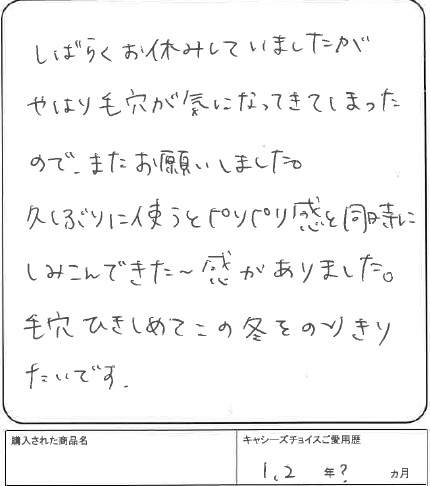 しばらくお休みしていましたが
やはり毛穴が気になってきてしまった
ので、またお願いしました。
久しぶりに使うとピリピリ感と同時に
しみこんできた〜感がありました。
毛穴ひきしめてこの冬をのりきり
たいです.
購入された商品名
キャシーズチョイスご愛用歴
1,2 年? ヵ月